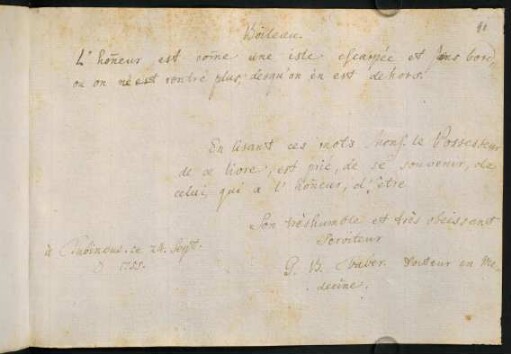 91
Boileau.
L'hoñeur est com̃e une isle escarpée et sans bord,
ou on n'est rentré plus, desqu'on en est dehors.
En lisant ces mots Mons. le Possesseur
de ce livre est prié, de se souvenir, de
celui, qui a l'hoñeur, d'être
Son trèshumble et très obeissant
Serviteur
à ce 24. Sept.
1755.
G. B. Docteur en Me-
decine.